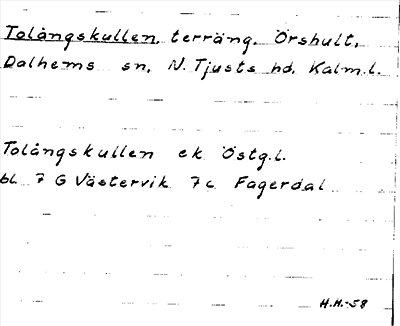 Tolångskullen, terräng, Örshult,
Dalhems sn, N. Tjusts hd, Kalm.l.
Tolångskullen ek Östg.l.
bl. 7 G Västervik 7c Fagerdal
H.H.-58